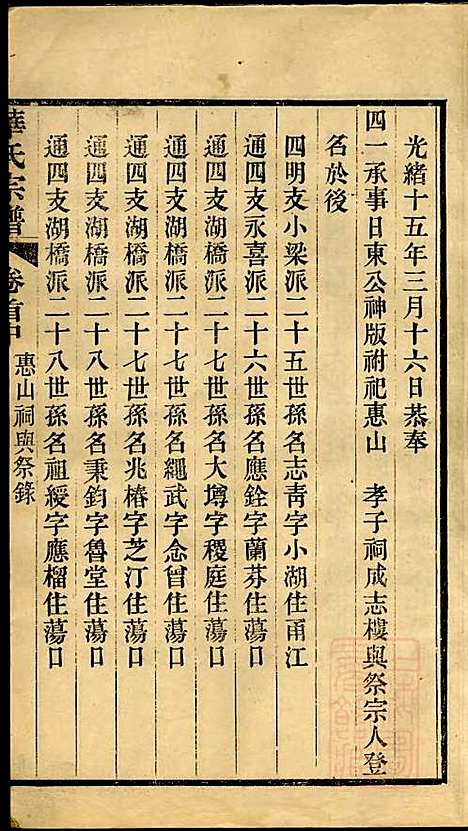 光緒十五年三月十六日恭奉
四一承事日東公神版祔祀惠山 孝子祠成志樓與祭宗人登
名於後
四明支小梁派二十五世孫名志青字小湖住甬江
通四支永喜派二十六世孫名應銓字蘭芬住蕩口
通四支湖橋派二十七世孫名大墫字稷庭住蕩口
通四支湖橋派二十七世孫名繩武字念曾住蕩口
通四支湖橋派二十七世孫名兆椿字芝汀住蕩口
通四支湖橋派二十八世孫名秉鈞字魯堂住蕩口
通四支湖橋派二十八世孫名祖綬字應榴住蕩口
華氏宗譜 卷首中 惠山祠與祭錄